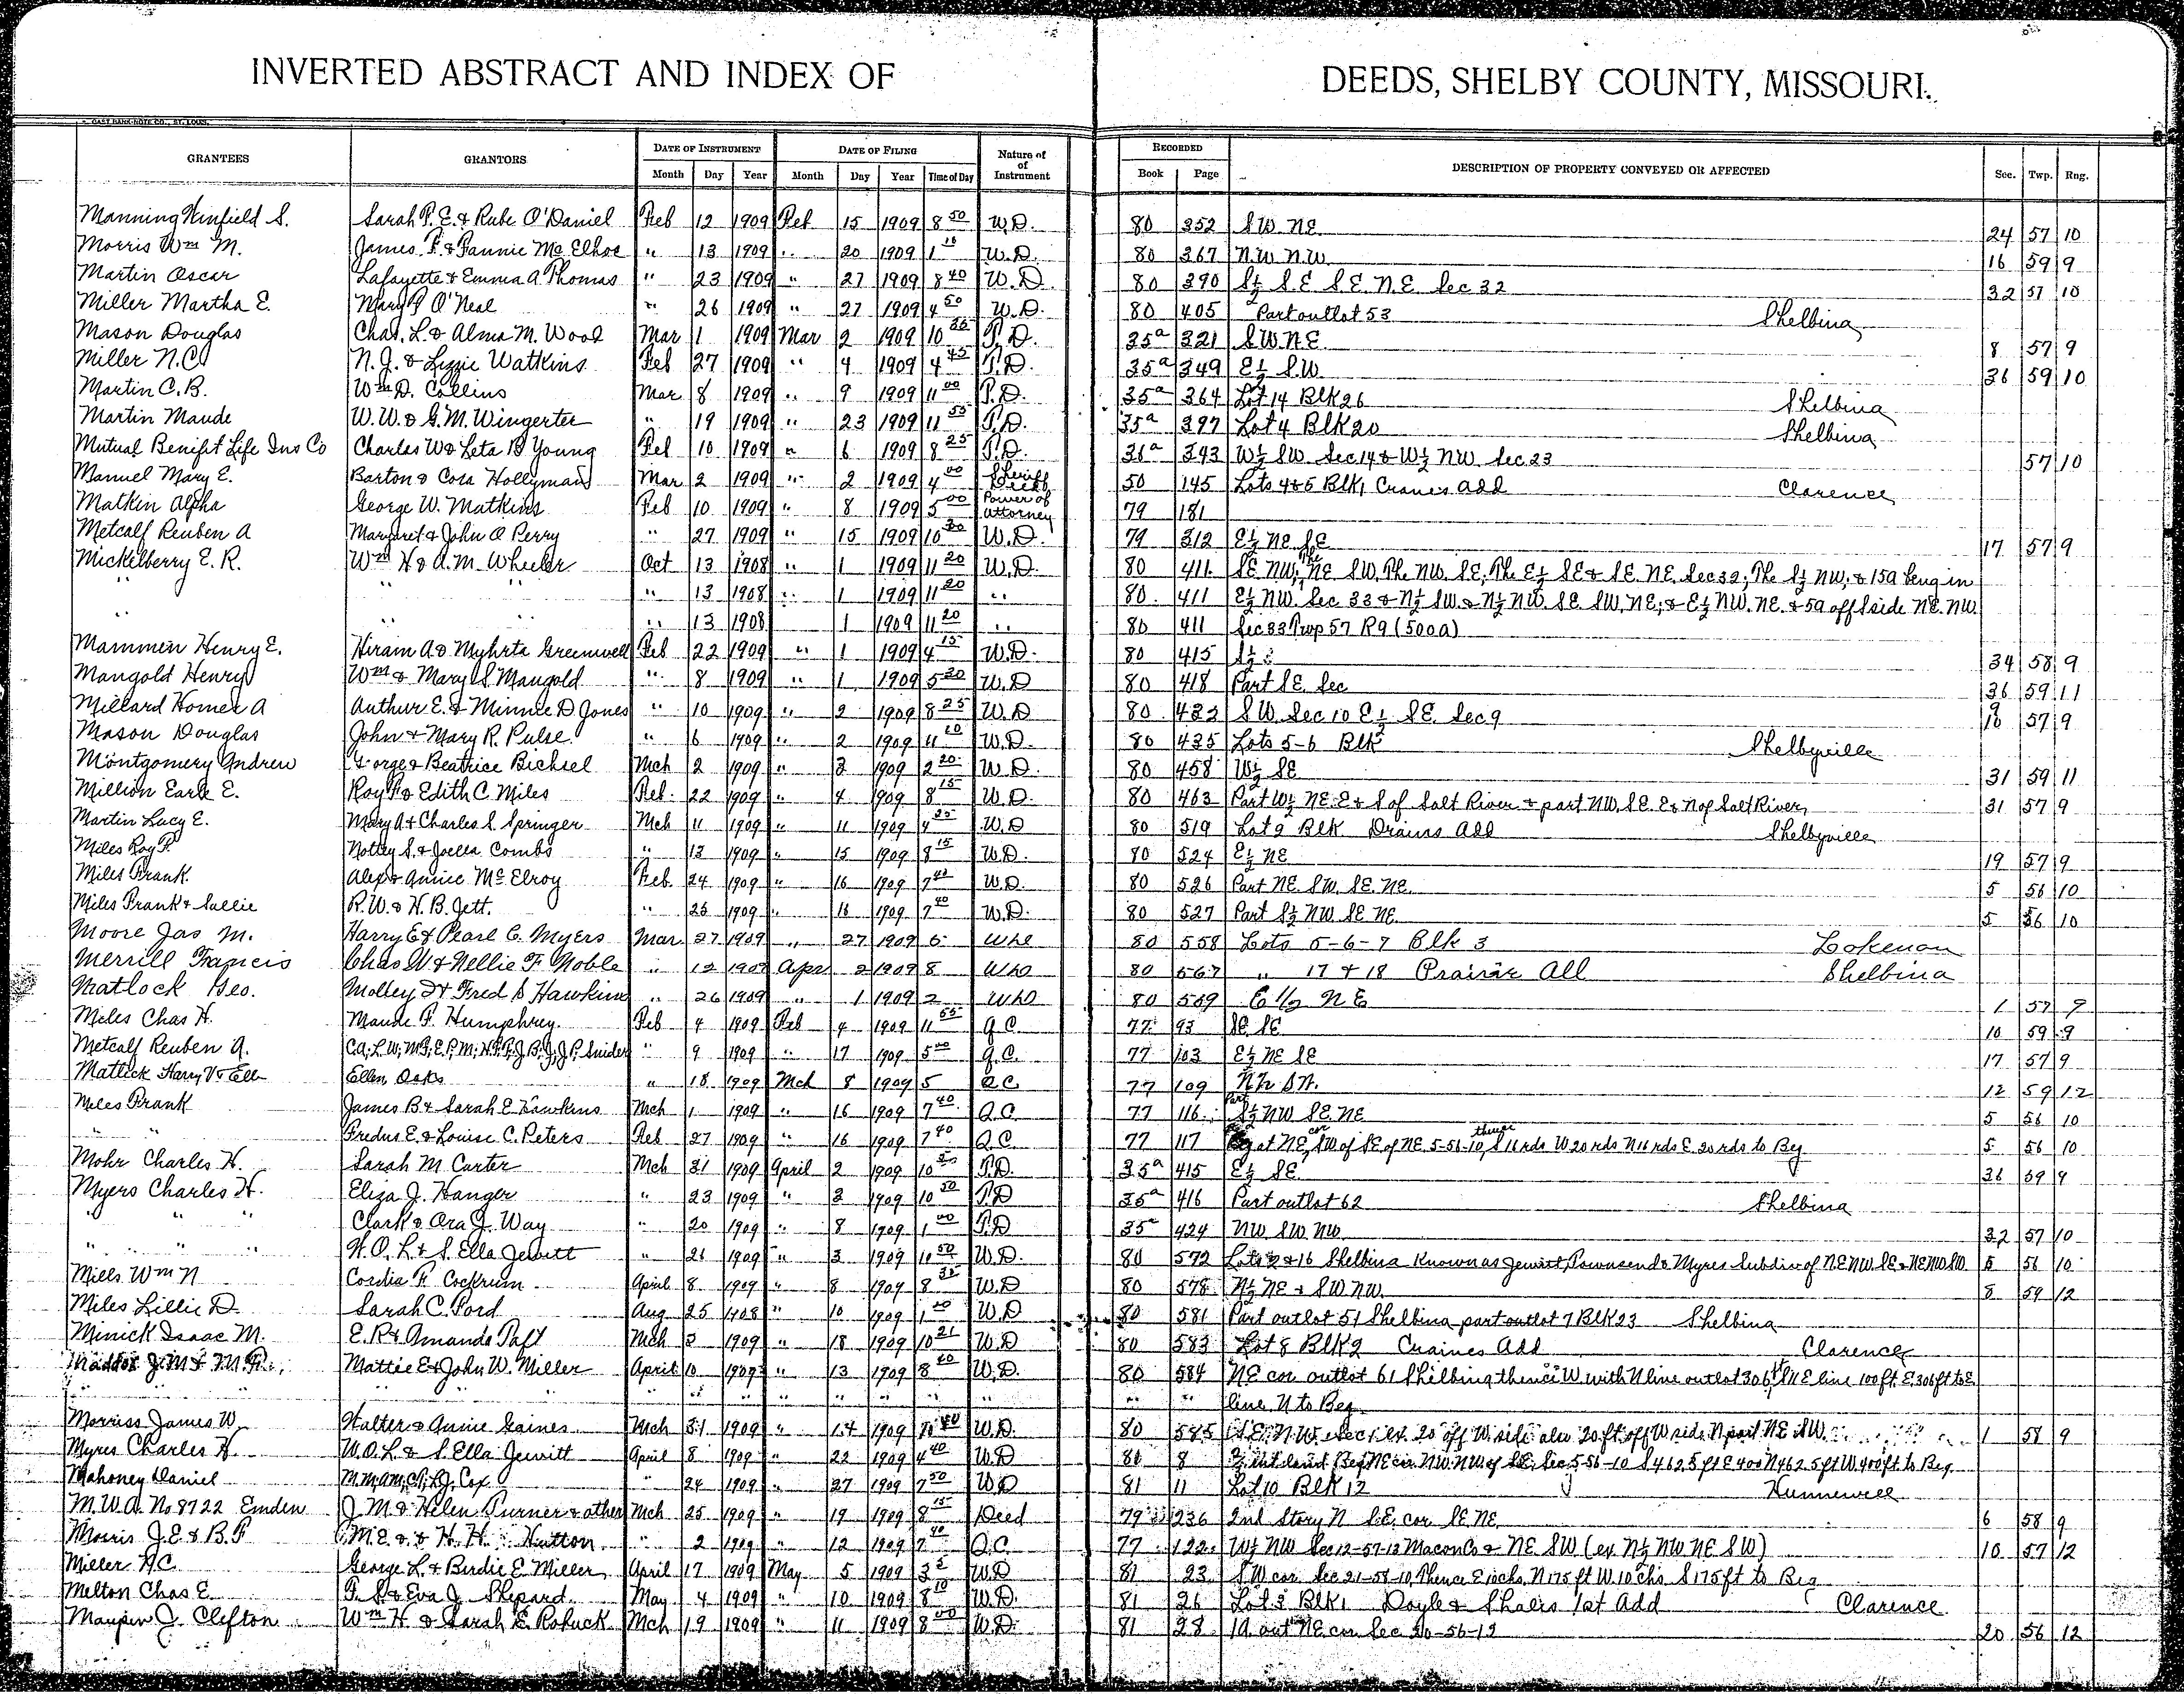 INVERTED ABSTRACT AND INDEX OF DEEDS, SHELBY COUNTY, MISSOURI.
GRANTEES GRANTORS DATE OF INSTRUMENT DATE OF FILING Nature of of Instrument RECORDED DESCRIPTION OF PROPERTY CONVEYED OR AFFECTED Sec. Twp. Rng.
Month Day Year Month Day Year Time of Day Book Page
Manning Winfield S. Sarah P. E. & Rube O'Daniel Feb 12 1909 Feb 15 1909 8 50 W.D. 80 352 SW NE 24 57 10
Morris Wm M. James F. & Fannie McElhoe " 13 1909 " 20 1909 1 10 W.D. 80 367 NW NW 16 59 9
Martin Oscar Lafayette & Emma A Thomas " 23 1909 " 27 1909 8 40 W.D. 80 390 S½ SE SE NE Sec 32 32 57 10
Miller Martha E. Mary O'Neal " 26 1909 " 27 1909 4 50 W.D. 80 405 Part outlot 53 Shelbina
Mason Douglas Chas. L. & Alma M. Wood Mar 1 1909 Mar 2 1909 10 T.D. 35a 321 SW NE 8 57 9
Miller N.C. N. J. & Lizzie Watkins Feb 27 1909 " 4 1909 4 45 T.D. 35a 349 E½ SW 36 59 10
Martin C.B. Wm D. Collins Mar 8 1909 " 9 1909 11 00 T.D. 35a 364 Lot 14 Blk 26 Shelbina
Martin Maude W.W. & G.M. Wingerter " 19 1909 " 23 1909 11 55 T.D. 35a 397 Lot 4 Blk 20 Shelbina
Mutual Benefit Life Ins Co Charles W & Leta B Young Feb 10 1909 " 6 1909 8 25 T.D. 36a 343 W½ SW Sec 14 & W½ NW Sec 23 57 10
Manuel Mary E. Barton & Cora Hollyman Mar 2 1909 " 2 1909 4 00 Sheriff Deed 50 145 Lots 4&5 Blk 1 Cranes Add Clarence
Matkin Alpha George W. Matkins Feb 10 1909 " 8 1909 5 00 Power of Attorney 79 181
Metcalf Reuben A Margaret & John O Perry " 27 1909 " 15 1909 10 30 W.D. 79 312 E½ NE SE 17 57 9
Mickelberry E. R. Wm H & A.M. Wheeler Oct 13 1908 " 1 1909 11 20 W.D. 80 411 SE NW; NE SW, The NW SE, The E½ SE & SE NE Sec 32; The S½ NW; & 15a being in
" " " " 13 1908 " 1 1909 11 20 " 80 411 E½ NW Sec 33 & N½ SW & N½ NW SE SW NE; & E½ NW NE & 5a off S side NE NW
" " " " 13 1908 1 1909 11 20 " 80 411 Sec 33 Twp 57 R9 (500a)
Mammen Henry E. Hiram A & Myhrta Greenwell Feb 22 1909 " 1 1909 4 15 W.D. 80 415 S½ 34 58 9
Mangold Henry Wm & Mary S Mangold " 8 1909 " 1 1909 5 20 W.D 80 418 Part SE Sec 36 59 11
Millard Homer A Arthur E. & Minnie D Jones " 10 1909 " 2 1909 8 25 W.D 80 422 SW Sec 10 E½ SE Sec 9 9 10 57 9
Mason Douglas John & Mary R. Pulse " 6 1909 " 2 1909 11 20 W.D. 80 435 Lots 5-6 Blk Shelbyville
Montgomery Andrew George & Beatrice Bichsel Mch 2 1909 " 3 1909 2 20 W.D. 80 458 W½ SE 31 59 11
Million Earle E. Roy F & Edith C. Miles Feb. 22 1909 " 4 1909 8 15 W.D. 80 463 Part W½ NE E & S of Salt River & part NW SE E & N of Salt River 31 57 9
Martin Lucy E. Mary A & Charles S. Springer Mch 11 1909 " 11 1909 4 25 W.D 80 519 Lot 2 Blk Drains Add Shelbyville
Miles Roy F. Nottey S. & Joella Combs " 13 1909 " 15 1909 8 15 W.D. 80 524 E½ NE 19 57 9
Miles Frank Alex & Annice McElroy Feb 24 1909 " 16 1909 7 40 W.D 80 526 Part NE SW SE NE 5 56 10
Miles Frank & Sallie R.W. & H.B. Jett. " 25 1909 " 16 1909 7 40 W.D. 80 527 Part S½ NW SE NE 5 56 10
Moore Jas M. Harry E & Pearl C. Myers Mar 27 1909 " 27 1909 6 80 558 Lots 5-6-7 Blk 3 Lakenan
Merrill Francis Chas W & Nellie F Noble " 12 1909 Apr 2 1909 8 80 567 " 17 & 18 Prairie Add Shelbina
Matlock Geo. Molley & Fred S Hawkins " 26 1909 " 1 1909 2 80 569 E 1/2 NE 1 57 9
Miles Chas H. Maude F. Humphrey Feb 4 1909 Feb 4 1909 11 55 Q.C. 77 93 SE SE 10 59 9
Metcalf Reuben A. Snider " 9 1909 " 17 1909 5 00 Q.C. 77 103 E½ NE SE 17 57 9
Matlick Harry V & Ell Ellen Oaks " 18 1909 Mch 8 1909 5 Q.C. 77 109 12 59 12
Miles Frank James B & Sarah E Hawkins Mch 1 1909 " 16 1909 7 40 Q.C. 77 116 Part S½ NW SE NE 5 56 10
" " Fredus E. & Louise C. Peters Feb 27 1909 " 16 1909 7 40 Q.C 77 117 Beg at NE cor SW of SE of NE 5-56-10, thence S 16 rds W 20 rds N 16 rds E 20 rds to Beg 5 56 10
Mohr Charles H. Sarah M Carter Mch 31 1909 April 2 1909 10 T.D. 35a 415 E½ SE 36 59 9
Myers Charles H. Eliza J. Hanger " 23 1909 " 3 1909 10 50 T.D 35a 416 Part outlot 62 Shelbina
" " " Clark & Ora J. Way " 20 1909 " 8 1909 1 00 T.D 35a 424 NW SW NW 32 57 10
" " " W. O. L & S. Ella Jewett " 26 1909 " 3 1909 10 50 W.D. 80 572 Lots 2 & 16 Shelbina Known as Jewitt, Townsend & Myres Subdiv of NE NW SE & NE NW SW 5 56 10
Mills Wm N Cordia F. Cockrum April 8 1909 " 8 1909 8 35 W.D 80 578 N½ NE & SW NW 8 59 12
Miles Lillie D. Sarah C. Ford Aug 25 1908 " 10 1909 1 00 W.D 80 581 Part outlot 51 Shelbina part outlot 7 Blk 23 Shelbina
Minick Isaac M. E. R & Amanda Taft Mch 3 1909 " 18 1909 10 21 W.D 80 583 Lot 8 Blk 2 Craines Add Clarence
Maddox J. M & M. F. Mattie E & John W. Miller April 10 1909 " 13 1909 8 40 W.D. 80 584 NE cor outlot 61 Shelbina thence W with N line outlot 306 ft S 11 E line 100 ft E 306 ft to E
" " " " " " " " " " " " " line N to Beg
Morriss James W Walter & Annie Gaines Mch 31 1909 " 14 1909 10 40 W.D. 80 585 SE NW Sec 1 ex 20 off W side also 20 ft off W side N part NE SW 1 58 9
Myres Charles H. W.O.L. & S. Ella Jewitt April 8 1909 " 22 1909 4 40 W.D 80 8 Beg NE cor NW NW of SE Sec 5-56-10 S 462.5 ft E 400 N 462.5 ft W 400 ft to Beg
Mahoney Daniel Cox " 24 1909 " 27 1909 7 50 W.D 81 11 Lot 10 Blk 12 Hunnewell
M.W.A. No 8722 Emden J. M & Helen Turner & other Mch 25 1909 " 19 1909 8 15 Deed 79 236 2nd Story N SE cor SE NE 6 58 9
Morris J.E & B.F M. E. & H. H. Hutton " 2 1909 " 12 1909 7 40 Q.C. 77 122 W½ NW Sec 12-57-12 Macon Co & NE SW (ex N½ NW NE SW) 10 57 12
Miller N.C. George L & Birdie E Miller April 17 1909 May 5 1909 3 W.D 81 23 SW cor Sec 21-58-10, Thence E 10 chs, N 175 ft W 10 chs S 175 ft to Beg
Melton Chas E. F. S. & Eva J. Shepard May 4 1909 " 10 1909 8 10 W.D. 81 26 Lot 3 Blk 1 Doyle & Shales 1st Add Clarence
Maupin J. Clefton Wm H & Sarah E. Rohuck Mch 19 1909 " 11 1909 8 00 W.D. 81 28 1a out NE cor Sec 20-56-12 20 56 12